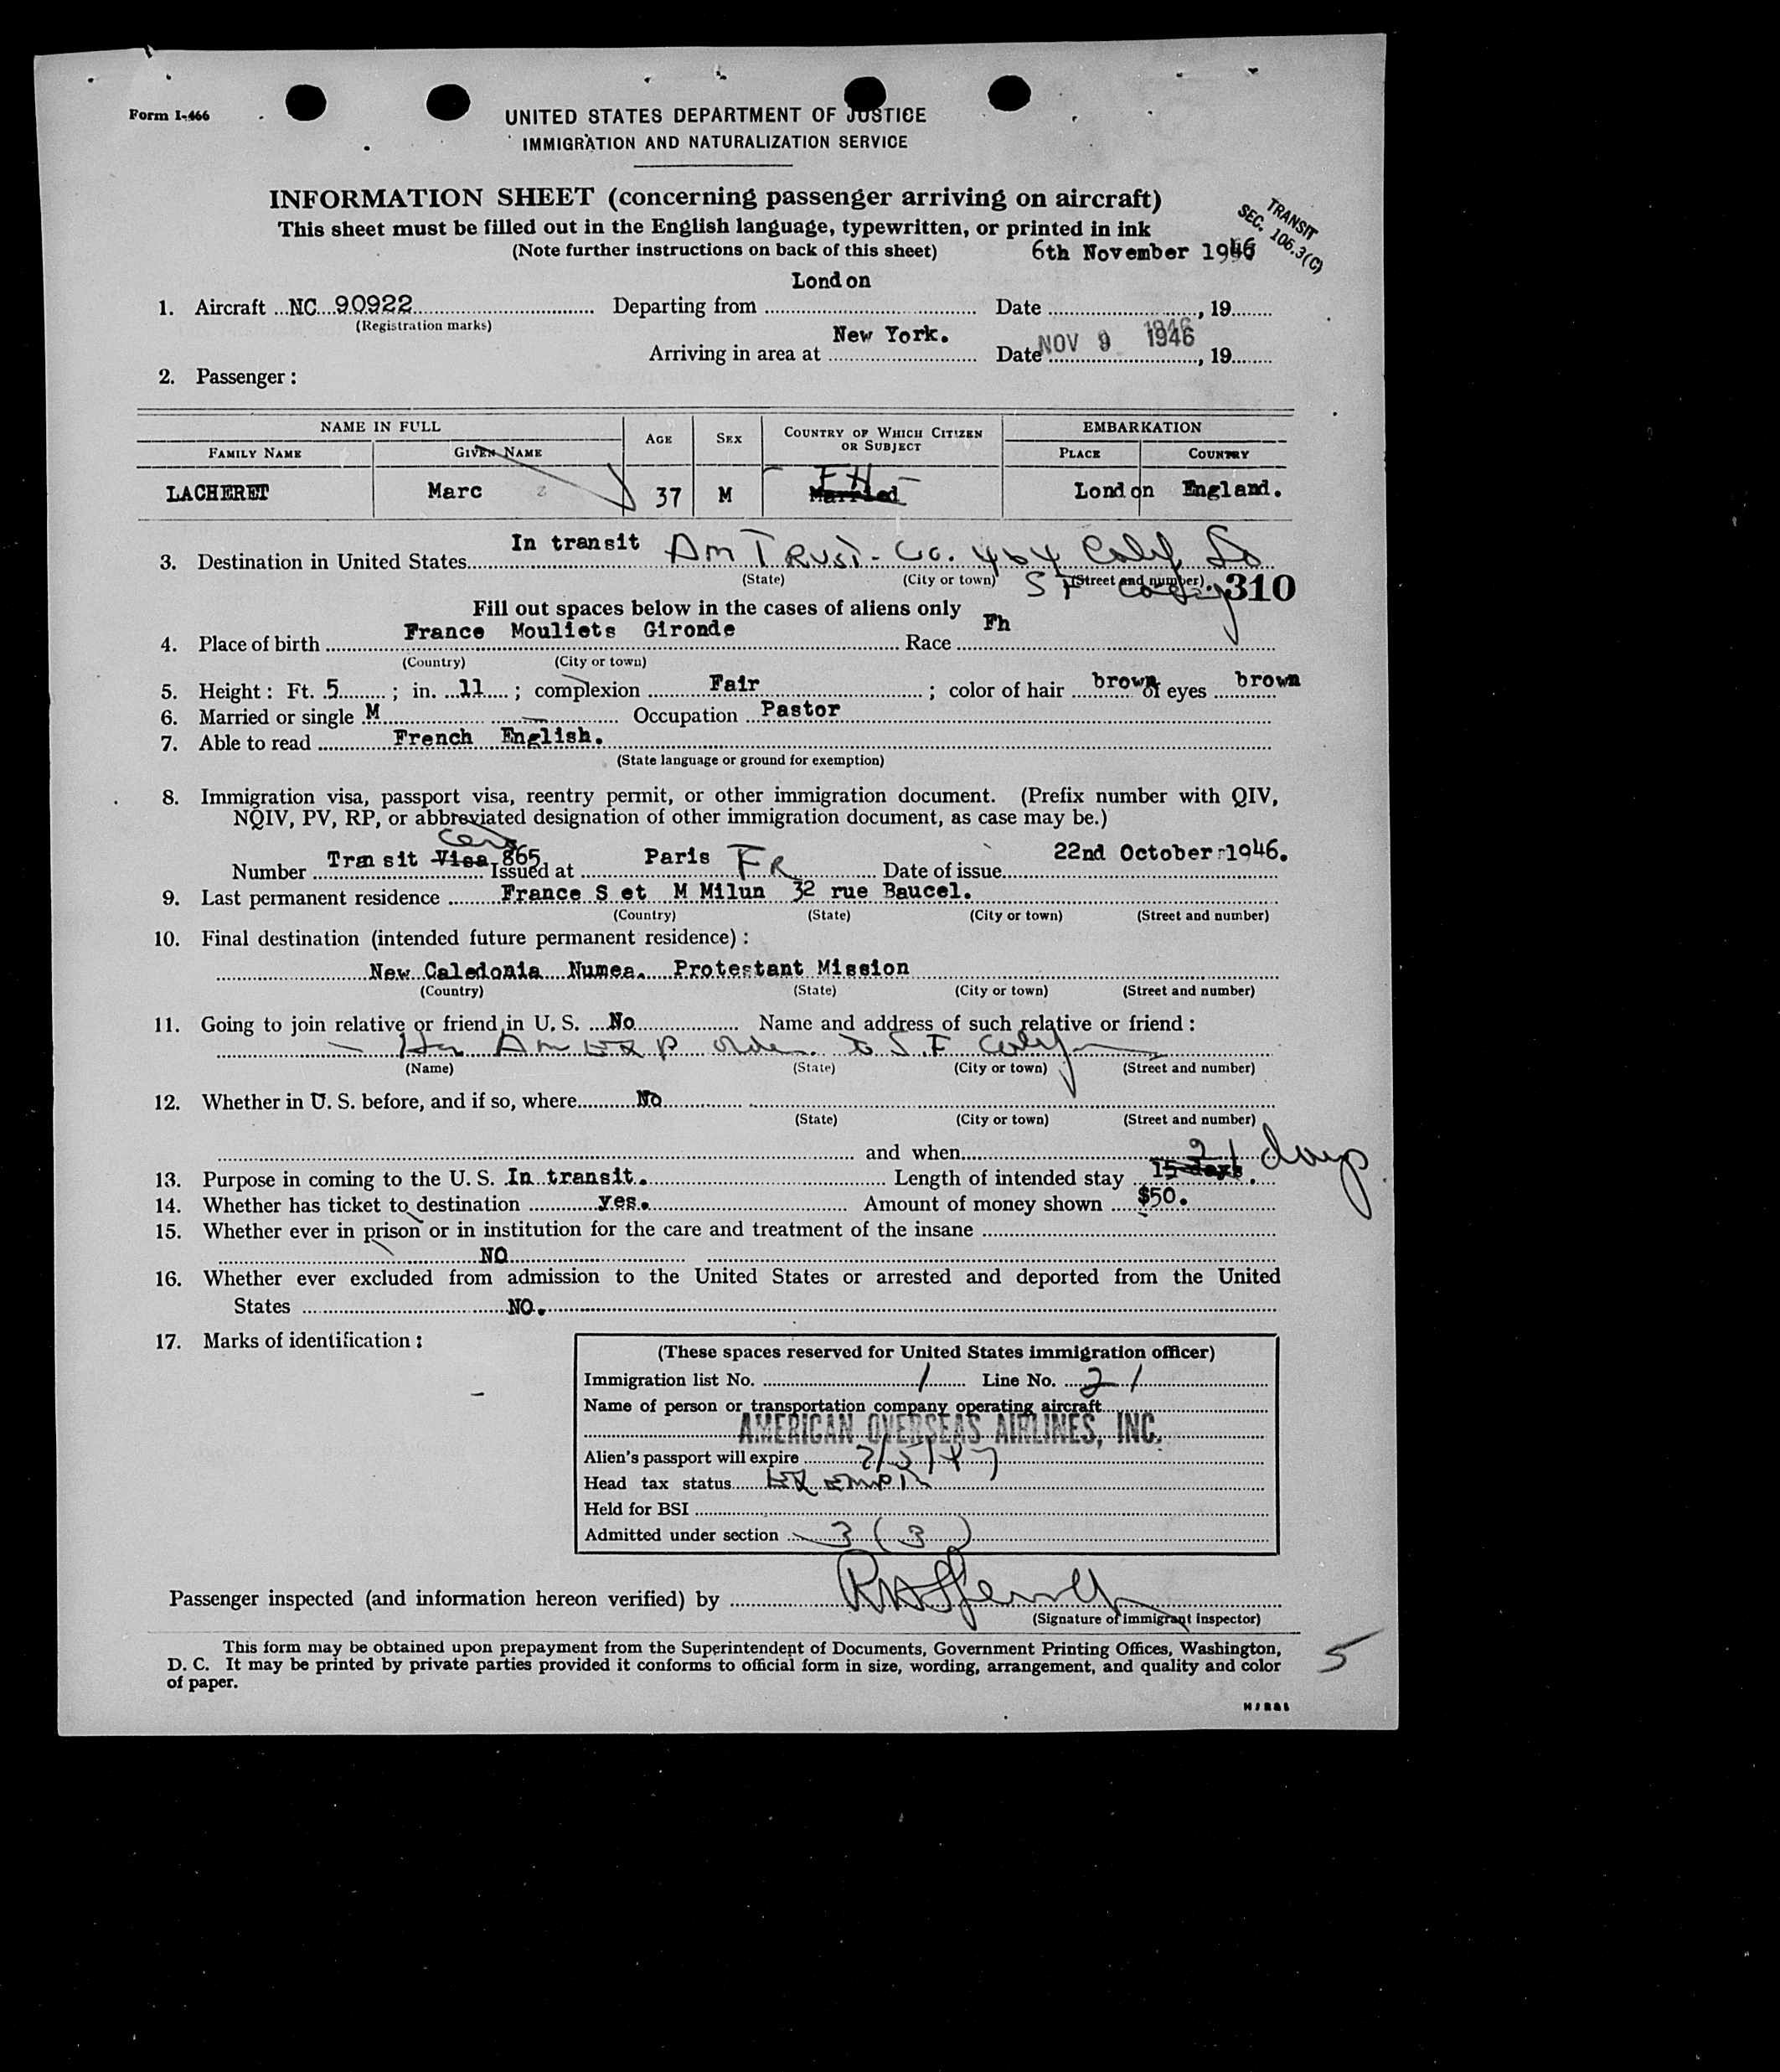 Form I-466
UNITED STATES DEPARTMENT OF JUSTICE
IMMIGRATION AND NATURALIZATION SERVICE
INFORMATION SHEET (concerning passenger arriving on aircraft)
This sheet must be filled out in the English language, typewritten, or printed in ink
(Note further instructions on back of this sheet)
TRANSIT
SEC. 106.3(C)
6th November 1946
London
1. Aircraft NC 90922 Departing from Date , 19
(Registration marks)
New York.
Arriving in area at Date NOV 9 1946 , 19
2. Passenger:
NAME IN FULL AGE SEX COUNTRY OF WHICH CITIZEN OR SUBJECT EMBARKATION
FAMILY NAME GIVEN NAME PLACE COUNTRY
LACHERET Marc 37 M Married London England.
3. Destination in United States In transit Am Trust Co. 464 Calif
(State) (City or town) (Street and number)
S F Calif 310
Fill out spaces below in the cases of aliens only
4. Place of birth France Mouliets Gironde Race Fh
(Country) (City or town)
5. Height: Ft. 5 ; in. 11 ; complexion Fair ; color of hair brown of eyes brown
6. Married or single M Occupation Pastor
7. Able to read French English.
(State language or ground for exemption)
8. Immigration visa, passport visa, reentry permit, or other immigration document. (Prefix number with QIV,
NQIV, PV, RP, or abbreviated designation of other immigration document, as case may be.)
Number Transit Visa 865 Issued at Paris FR Date of issue 22nd October 1946.
9. Last permanent residence France S et M Milun 32 rue Baucel.
(Country) (State) (City or town) (Street and number)
10. Final destination (intended future permanent residence):
New Caledonia Numea. Protestant Mission
(Country) (State) (City or town) (Street and number)
11. Going to join relative or friend in U. S. No Name and address of such relative or friend:
Am Exp to S.F Calif
(Name) (State) (City or town) (Street and number)
12. Whether in U. S. before, and if so, where No
(State) (City or town) (Street and number)
and when
13. Purpose in coming to the U. S. In transit. Length of intended stay 15 days. 21 days
14. Whether has ticket to destination yes. Amount of money shown $50.
15. Whether ever in prison or in institution for the care and treatment of the insane
NO
16. Whether ever excluded from admission to the United States or arrested and deported from the United
States NO.
17. Marks of identification:
(These spaces reserved for United States immigration officer)
Immigration list No. 1 Line No. 21
Name of person or transportation company operating aircraft
AMERICAN OVERSEAS AIRLINES, INC.
Alien's passport will expire 7/5/47
Head tax status Exempt
Held for BSI
Admitted under section 3 (3)
Passenger inspected (and information hereon verified) by
(Signature of immigrant inspector)
This form may be obtained upon prepayment from the Superintendent of Documents, Government Printing Offices, Washington,
D. C. It may be printed by private parties provided it conforms to official form in size, wording, arrangement, and quality and color
of paper.
5